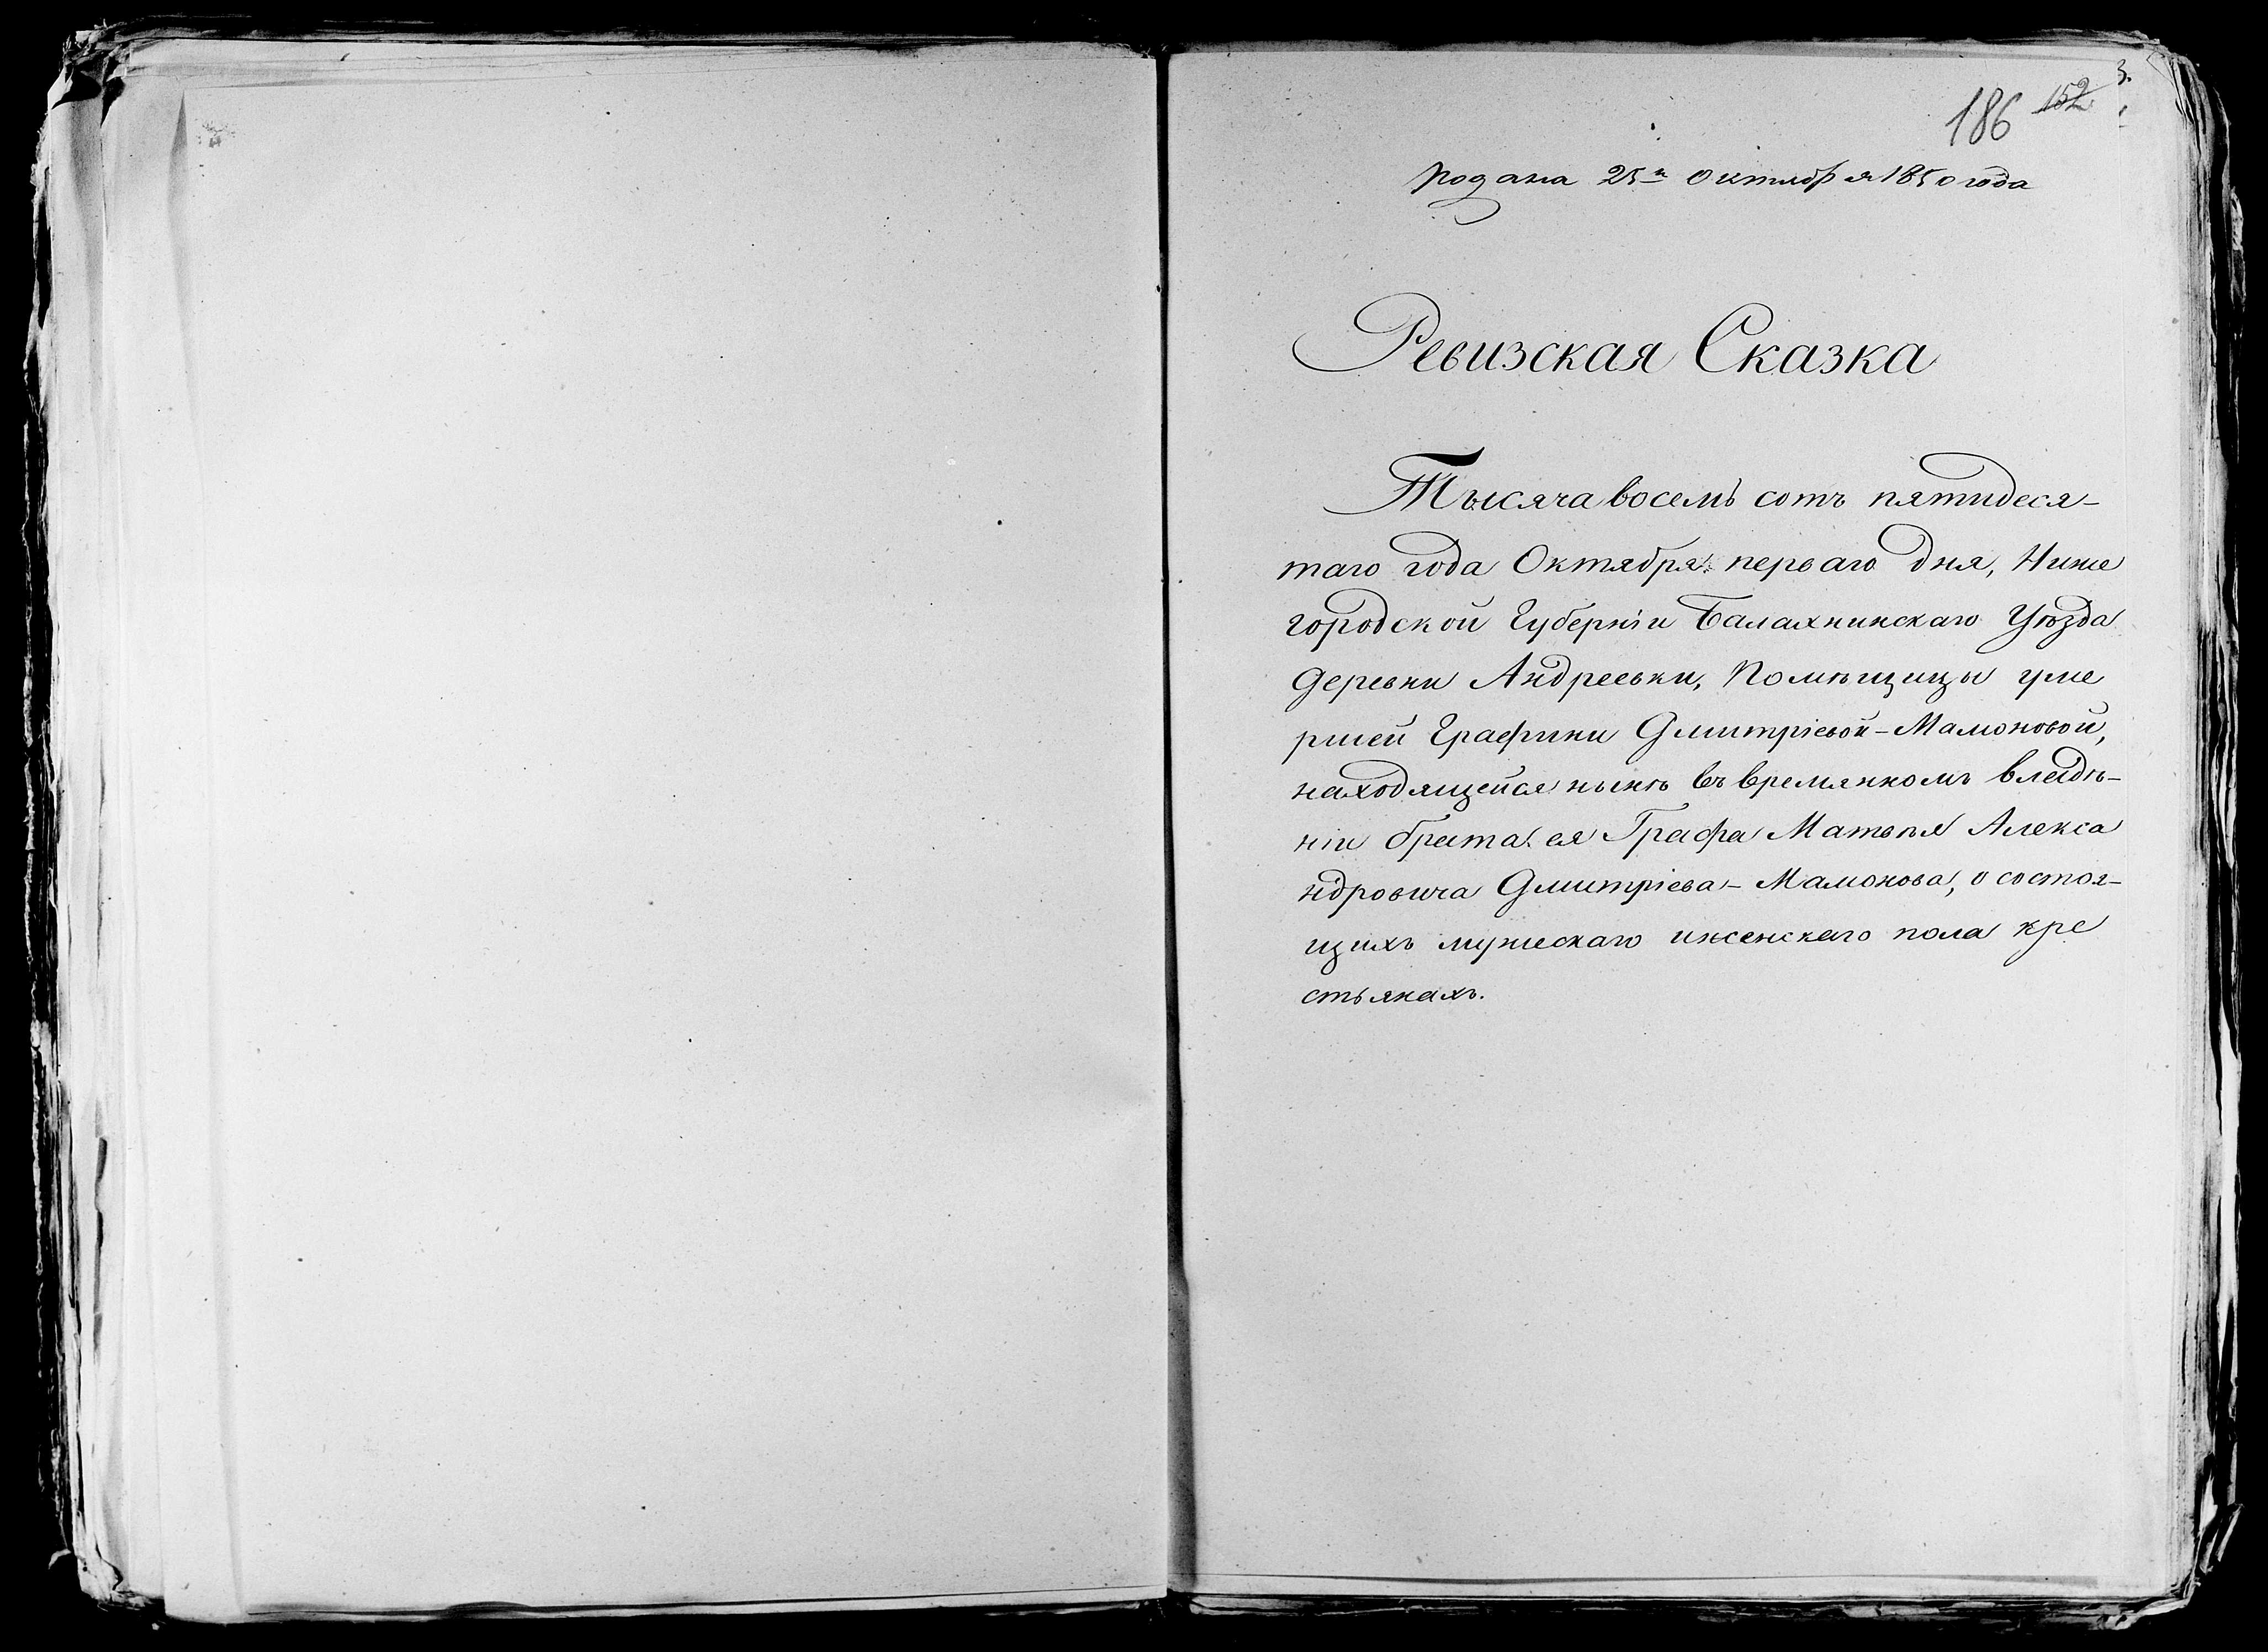 3.
186 152
подана 25го Октября 1850 года
Ревизская Сказка
Тысяча восемь сотъ пятидеся-
таго года Октября перваго дня, Ниже
городской Губерніи Балахнинскаго Уѣзда
деревни Андреевки, Помѣщицы уме
ршей Графини Дмитріевой-Мамоновой,
находящейся нынѣ въ времянномъ владѣ-
ніи брата ея Графа Матвѣя Алекса
ндровича Дмитріева-Мамонова, о состоя-
щихъ мужескаго и женскаго пола кре
стьянахъ.